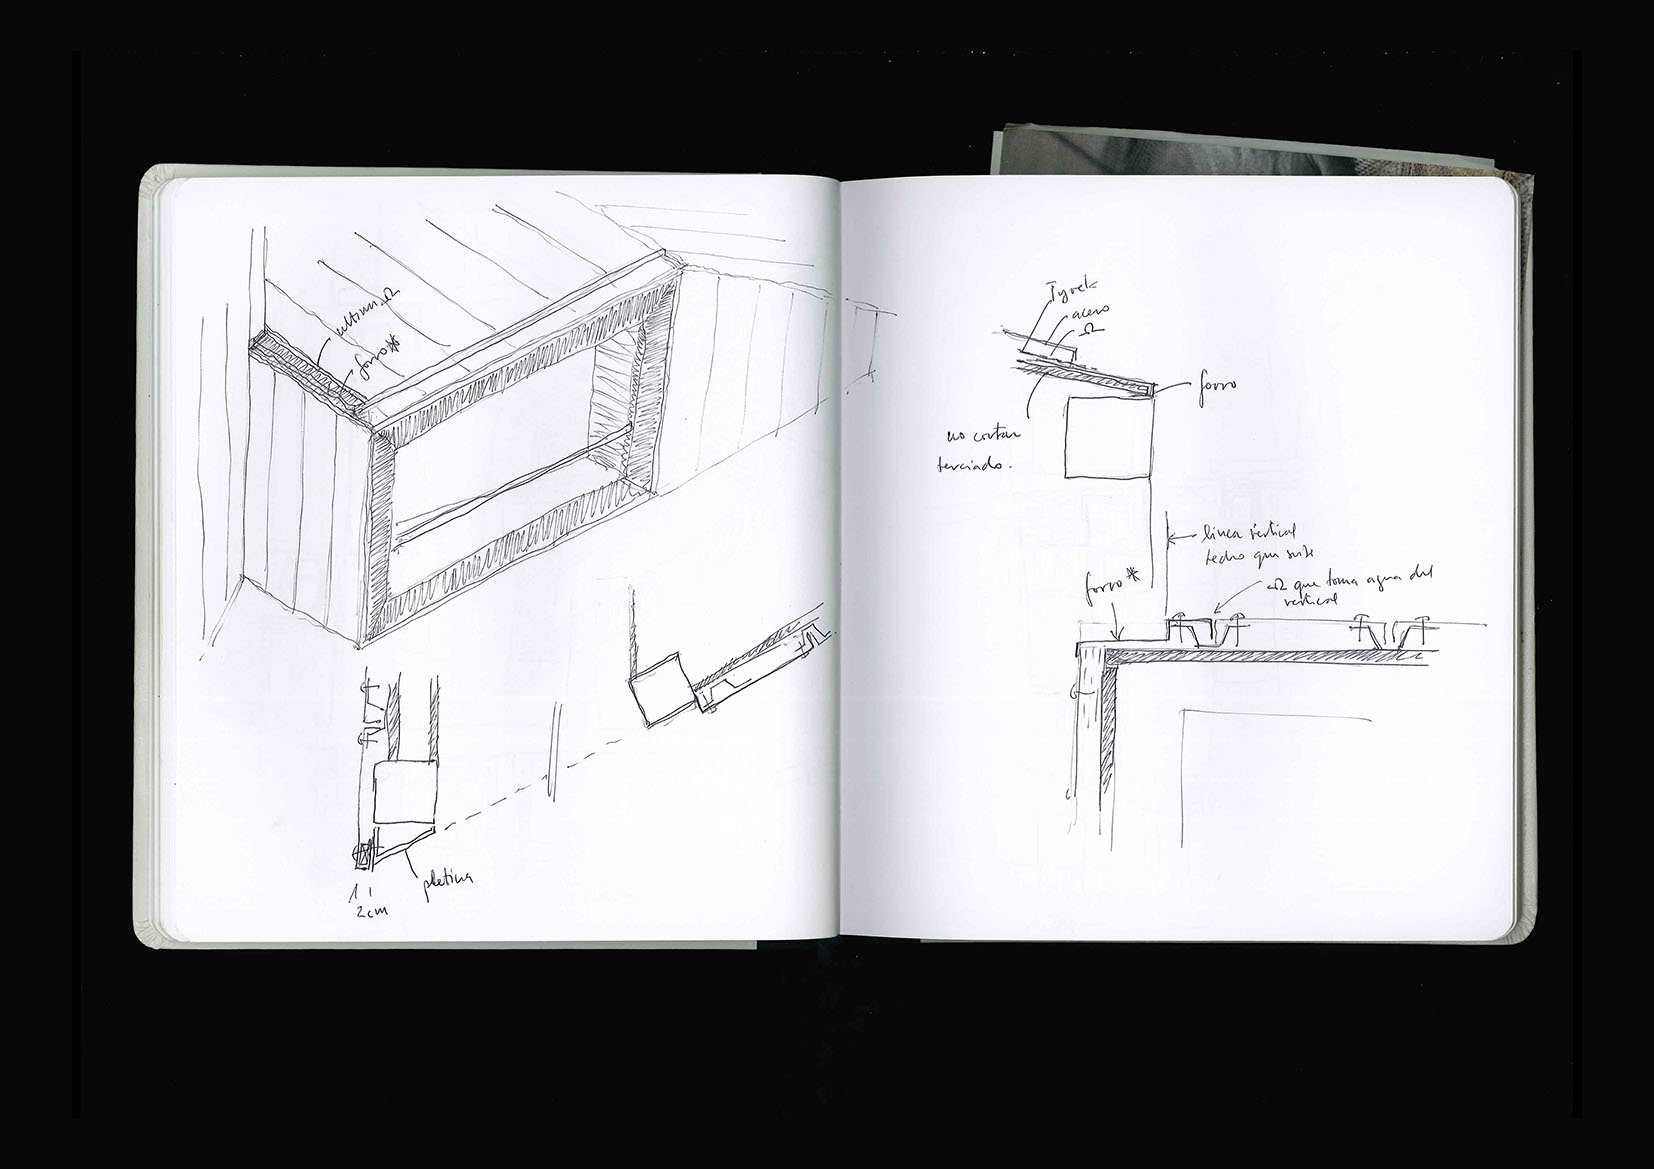 ultima Ω
forro*
pletina
2cm
Tyvek
acero
Ω
forro
no cortar
terciado.
linea vertical
techo que sube
forro*
Ω que toma agua del
vertical